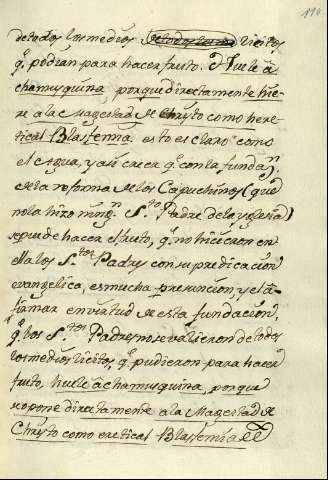 190
de todos los medios de todos los me licitos
q.e podian para hacer fruto. Huele â
chamusquina, porque directamente hie-
re a la Magestad de Christo como here-
tical Blasfemia. esto es claro como
el agua, y asi creer q.e con la fundaz.n
de la reforma de los Capuchinos (que
no la hizo ning.n S.to Padre de la yglesia)
se puede hacer el fruto, q.e no hicieron en
ella los S.tos Padres con su predicacion
evangelica, es mucha presuncion, y el a-
firmar en virtud de esta fundacion,
q.e los S.tos Padres no se valieron de todos
los medios licitos, q.e pudieron para hacer
fruto, huele â chamusquina, porque
se opone directamente a la Magestad de
Christo como eretical Blasfemia